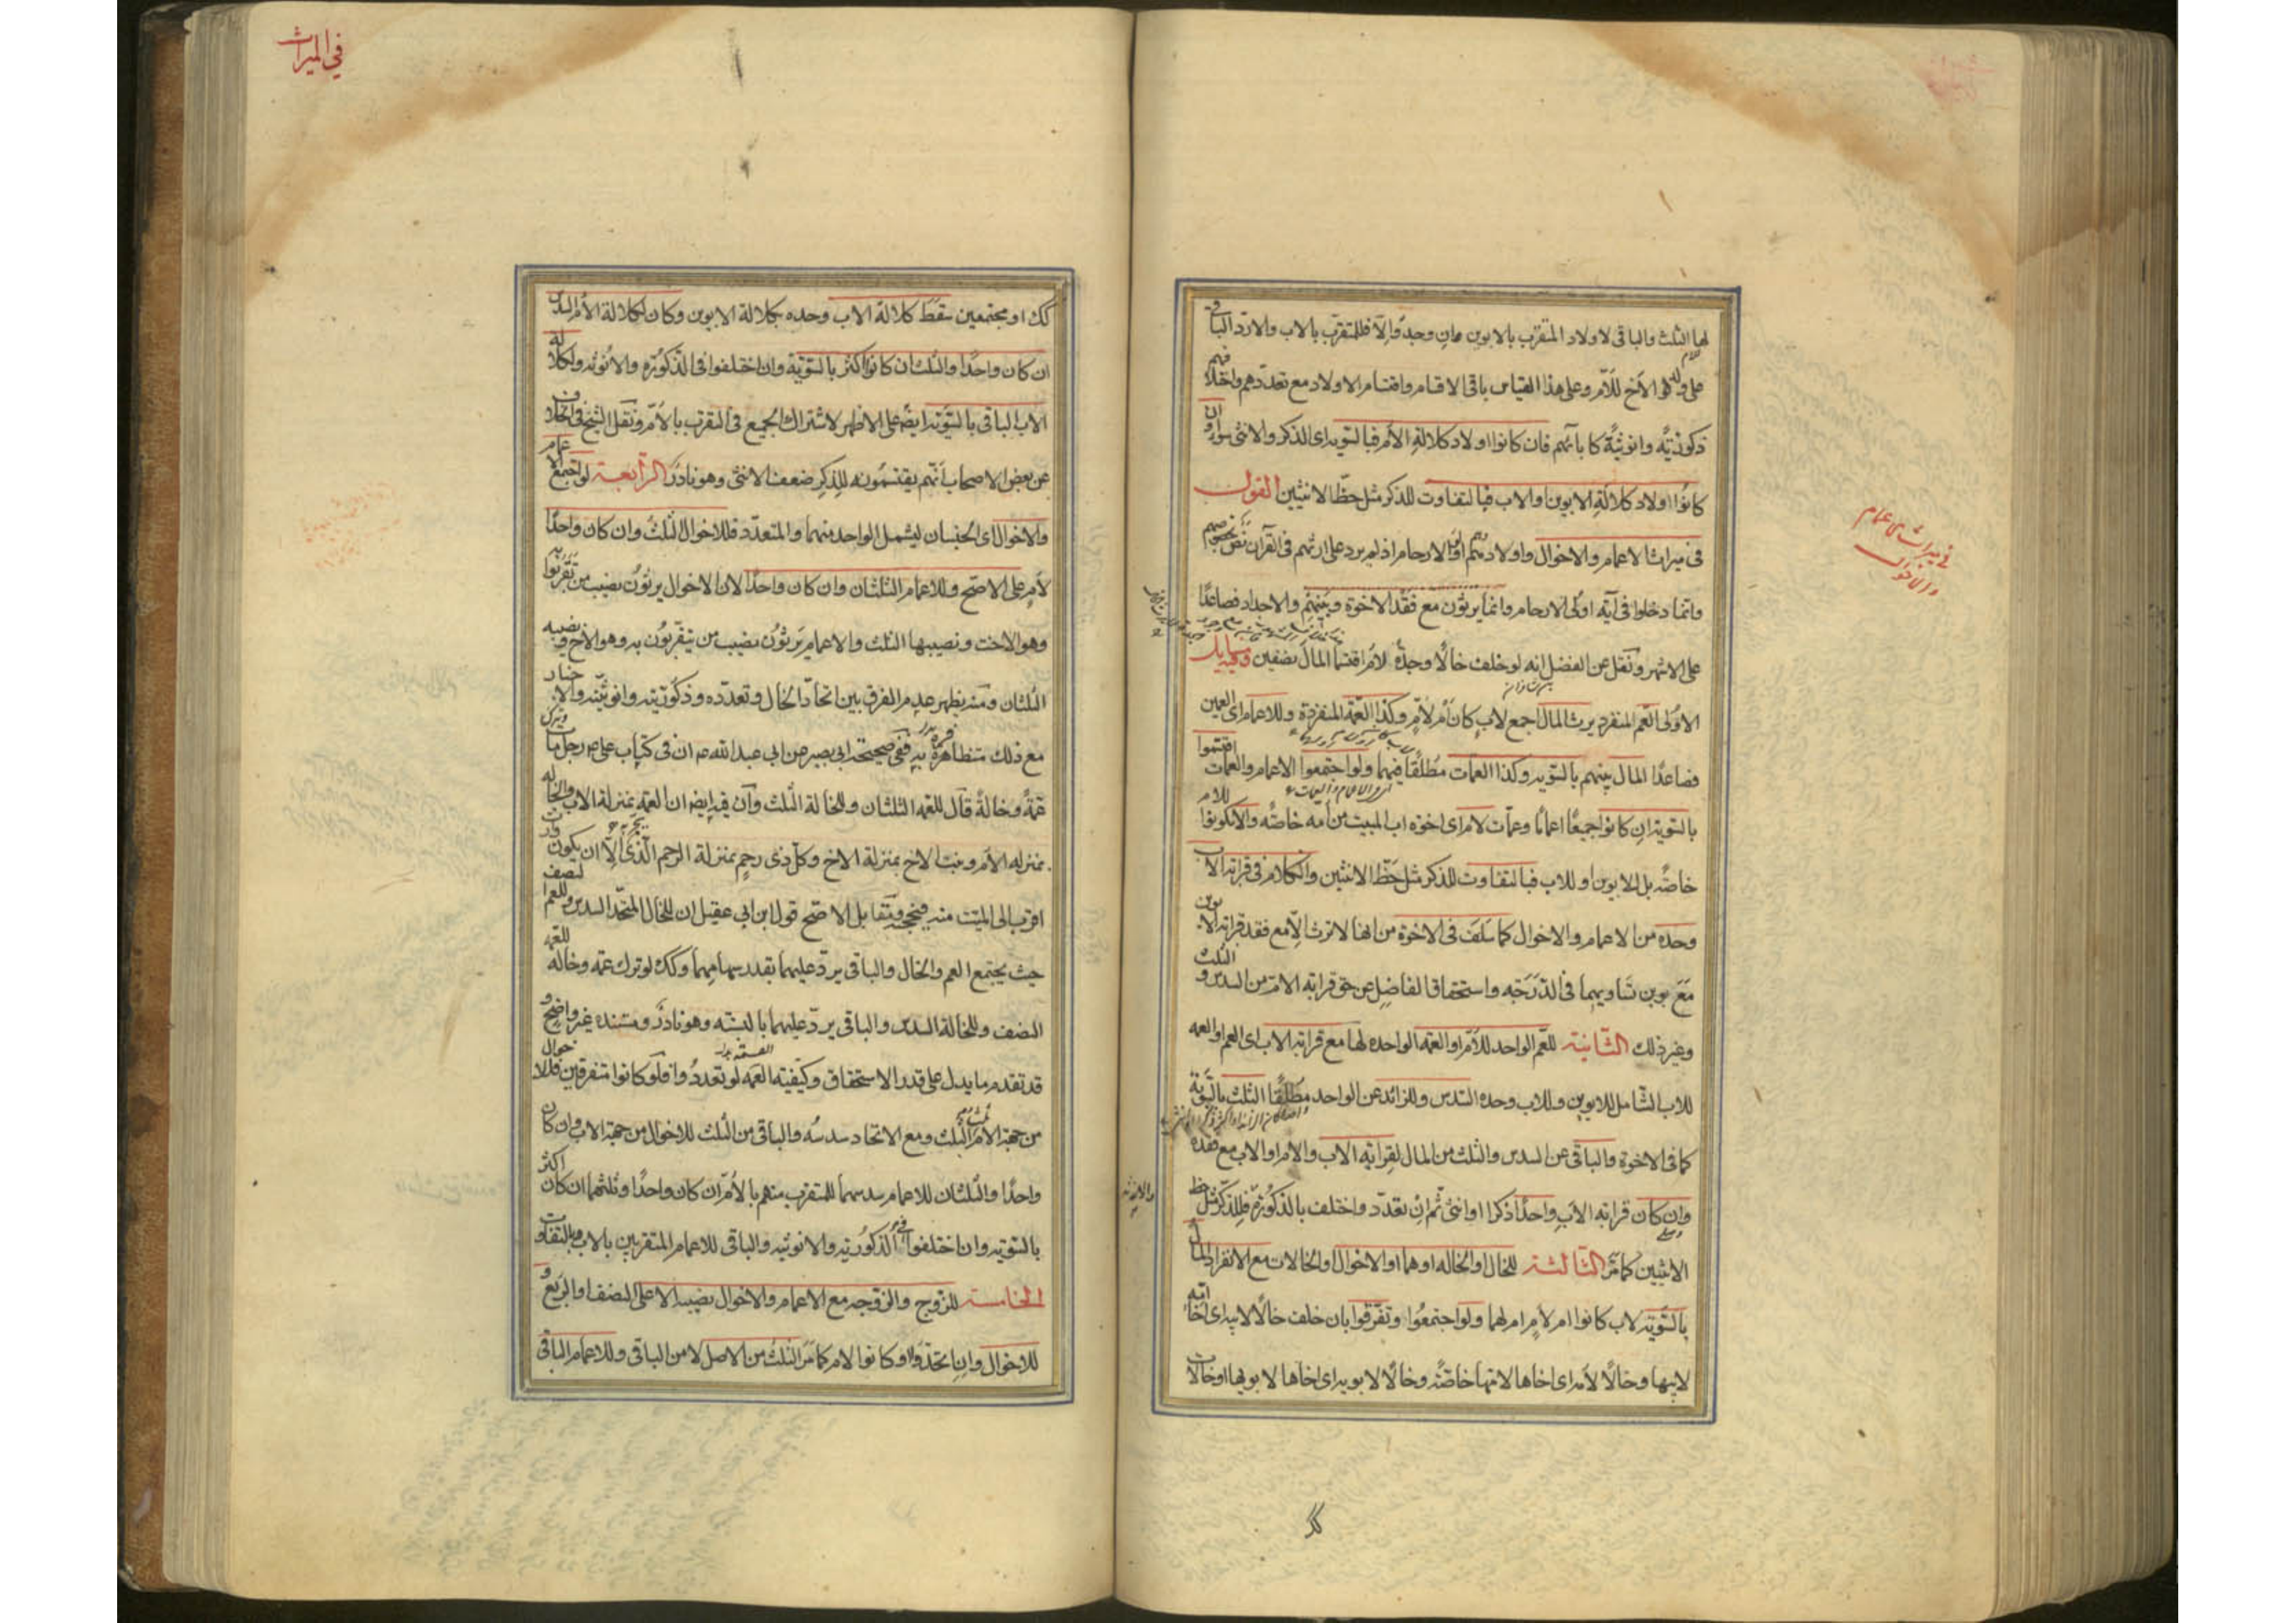 لها الثلث والباقى لاولاد المتقرّب بالابوين ان وجدوا والّا فللمتقرّب بالاب والا ردّ الباقى
على ولد الاخ للامّ وعلى هذا القياس باقى الاقسام واقتسام الاولاد مع تعدّدهم واختلافهم
ذكوريّة وانوثيّة كآبائهم فان كانوا اولاد كلالة الامّ فبالسويه اى الذكر والانثى سواء وان
كانوا اولاد كلالة الابوين والاب فبالتفاوت للذكر مثل حظّ الانثيين القول
فى ميراث الاعمام والاخوال واولادهم اولو الارحام اذ لم يرد على ارثهم فى القرآن نصّ بخصوصهم
وانما دخلوا فى آية اولى الارحام وانما يرثون مع فقد الاخوة وبنيهم والاجداد فصاعدًا
على الاشهر ونقل عن الفضل انه لو خلف خالًا وجدّة لامّ اقتسما المال نصفين وفيه مسايل
الاولى العم المنفرد يرث المال اجمع لاب كان ام لامّ وكذا العمّة المنفردة وللاعمام اى العمين
فصاعدًا المال بينهم بالسويه وكذا العمات مطلقًا فيهما ولو اجتمعوا الاعمام والعمات اقتسموا
بالسويه ان كانوا جميعًا اعمامًا وعمّات لام اى اخوة اب الميت من امه خاصّه والا يكونوا للام
خاصّه بل للابوين او للاب فبالتفاوت للذكر مثل حظّ الانثيين والكلام فى قرابة الاب
وحده من الاعمام والاخوال كما سلف فى الاخوة من انها لا ترث الّا مع فقد قرابة الابوين
مع تساويهما فى الدّرجه واستحقاق الفاضل عن حق قرابة الام من السدس والثلث
وغير ذلك الثانية للعم الواحد للامّ او العمّه الواحده لها مع قرابة الاب اى العم او العمه
للاب الشامل للابوين وللاب وحده السّدس وللزائد عن الواحد مطلقًا الثلث بالسّويّة
كما فى الاخوة والباقى عن السدس والثلث من المال لقرابة الاب والام او الاب مع فقده
وان كان قرابة الاب واحدًا ذكرا او انثى ثم ان تعدّد واختلف بالذكورة فللذكر مثل حظ
الانثيين كما مرّ الثالثة للخال او الخاله او هما او الاخوال او الخالات مع الانفراد المال
بالسّويّه لاب كانوا ام لام ام لهما ولو اجتمعوا وتفرّقوا بان خلف خالًا لابيه اى اخا امّه
لابيها وخالًا لامه اى اخاها لامّها خاصّه وخالًا لابويه اى اخاها لابويها او خالات
فى ميراث الاعمام
والاخوال
والانوثه
فى الميراث
كك او مجتمعين سقط كلالة الاب وحده بكلالة الابوين وكان لكلالة الام السدس
ان كان واحدًا والثلث ان كانوا اكثر بالسّويّة وان اختلفوا فى الذكورة والانوثه ولكلالة
الاب الباقى بالسّويّة ايضا على الاظهر لاشتراك الجميع فى التقرّب بالامّ ونقل الشيخ فى الخلاف
عن بعض الاصحاب انّهم يقتسمونه للذكر ضعف الانثى وهو نادر الرّابعة لو اجتمع الاعمام
والاخوال اى الجنسان ليشمل الواحد منهما والمتعدّد فللاخوال الثلث وان كان واحدًا
لام على الاصحّ وللاعمام الثلثان وان كان واحدًا لان الاخوال يرثون نصيب من تقرّبوا به
وهو الاخت ونصيبها الثلث والاعمام يرثون نصيب من يتقرّبون به وهو الاخ ونصيبه
الثلثان ومنه يظهر عدم الفرق بين اتحاد الخال وتعدّده وذكوريّته وانوثيّته والاخبار
مع ذلك متظافرة به ففى صحيحة ابى بصير عن ابى عبدالله ان فى كتاب على رجل مات وترك
عمّة وخالةً قال للعمه الثلثان وللخالة الثلث وان فيه ايضا ان العمّه بمنزلة الاب والخاله
بمنزله الام وبنت الاخ بمنزلة الاخ وكلّ ذى رحم بمنزلة الرحم الذى يجرّ به الّا ان يكون وارث
اقرب الى الميّت منه فيحجبه ويقابل الاصحّ قول ابن ابى عقيل ان للخال المتحّد السدس وللعم النصف
حيث يجتمع العم والخال والباقى يردّ عليهما بقدر سهامهما وكك لو ترك عمّه وخاله للعمّه
النصف وللخالة السدس والباقى يردّ عليهما بالنسبه وهو نادر ومستنده غير واضح و
قد تقدم ما يدل على قدر الاستحقاق وكيفية القسمه لو تعددوا فلو كانوا متفرقين فللاخوال
من جهة الام ثلث الثلث ومع الاتحاد سدسه والباقى من الثلث للاخوال من جهة الاب وان كان
واحدًا والثلثان للاعمام سدسهما للمتقرب منهم بالامّ ان كان واحدًا وثلثهما ان كان اكثر
بالسّويّه وان اختلفوا فى الذكوريّه والانوثيّه والباقى للاعمام المتقربين بالاب بالتفاوت
الخامسة للزّوج والزّوجه مع الاعمام والاخوال نصيبه الاعلى النصف او الربع و
للاخوال وان اتحدوا او كانوا لام كما مرّ الثلث من الاصل لا من الباقى وللاعمام الباقى